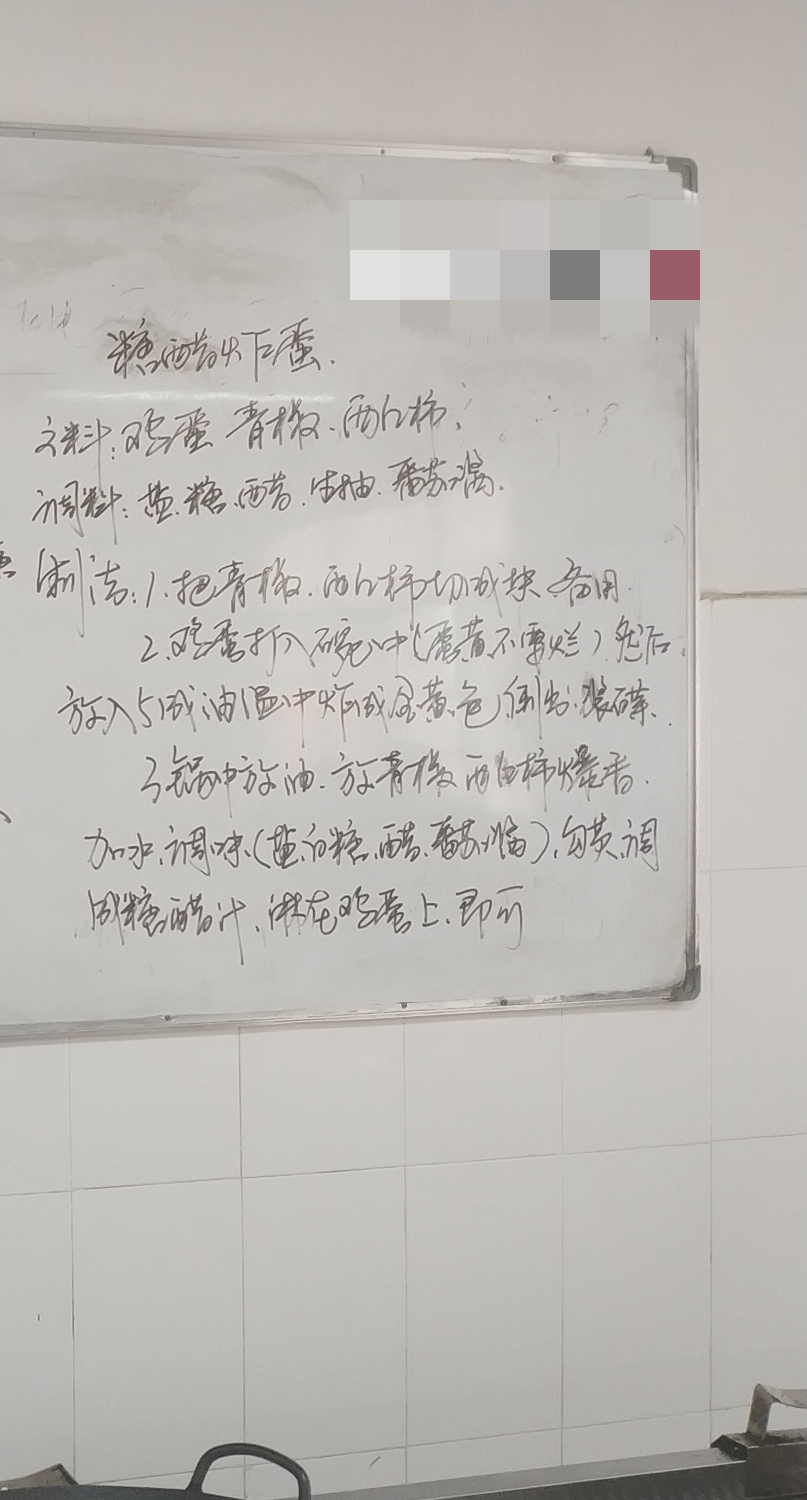 糖醋炸蛋.
主料:鸡蛋 青椒、西红柿.
调料:盐.糖.醋.生抽.番茄酱.
制法:1.把青椒.西红柿切成块.备用.
2.鸡蛋打入碗中(蛋黄不要烂).然后
放入5成油温中炸成金黄色,倒出.装碟.
3.锅中放油.放青椒西红柿爆香.
加水.调味(盐.白糖.醋.番茄酱).勾芡.调
成糖醋汁、淋在鸡蛋上.即可